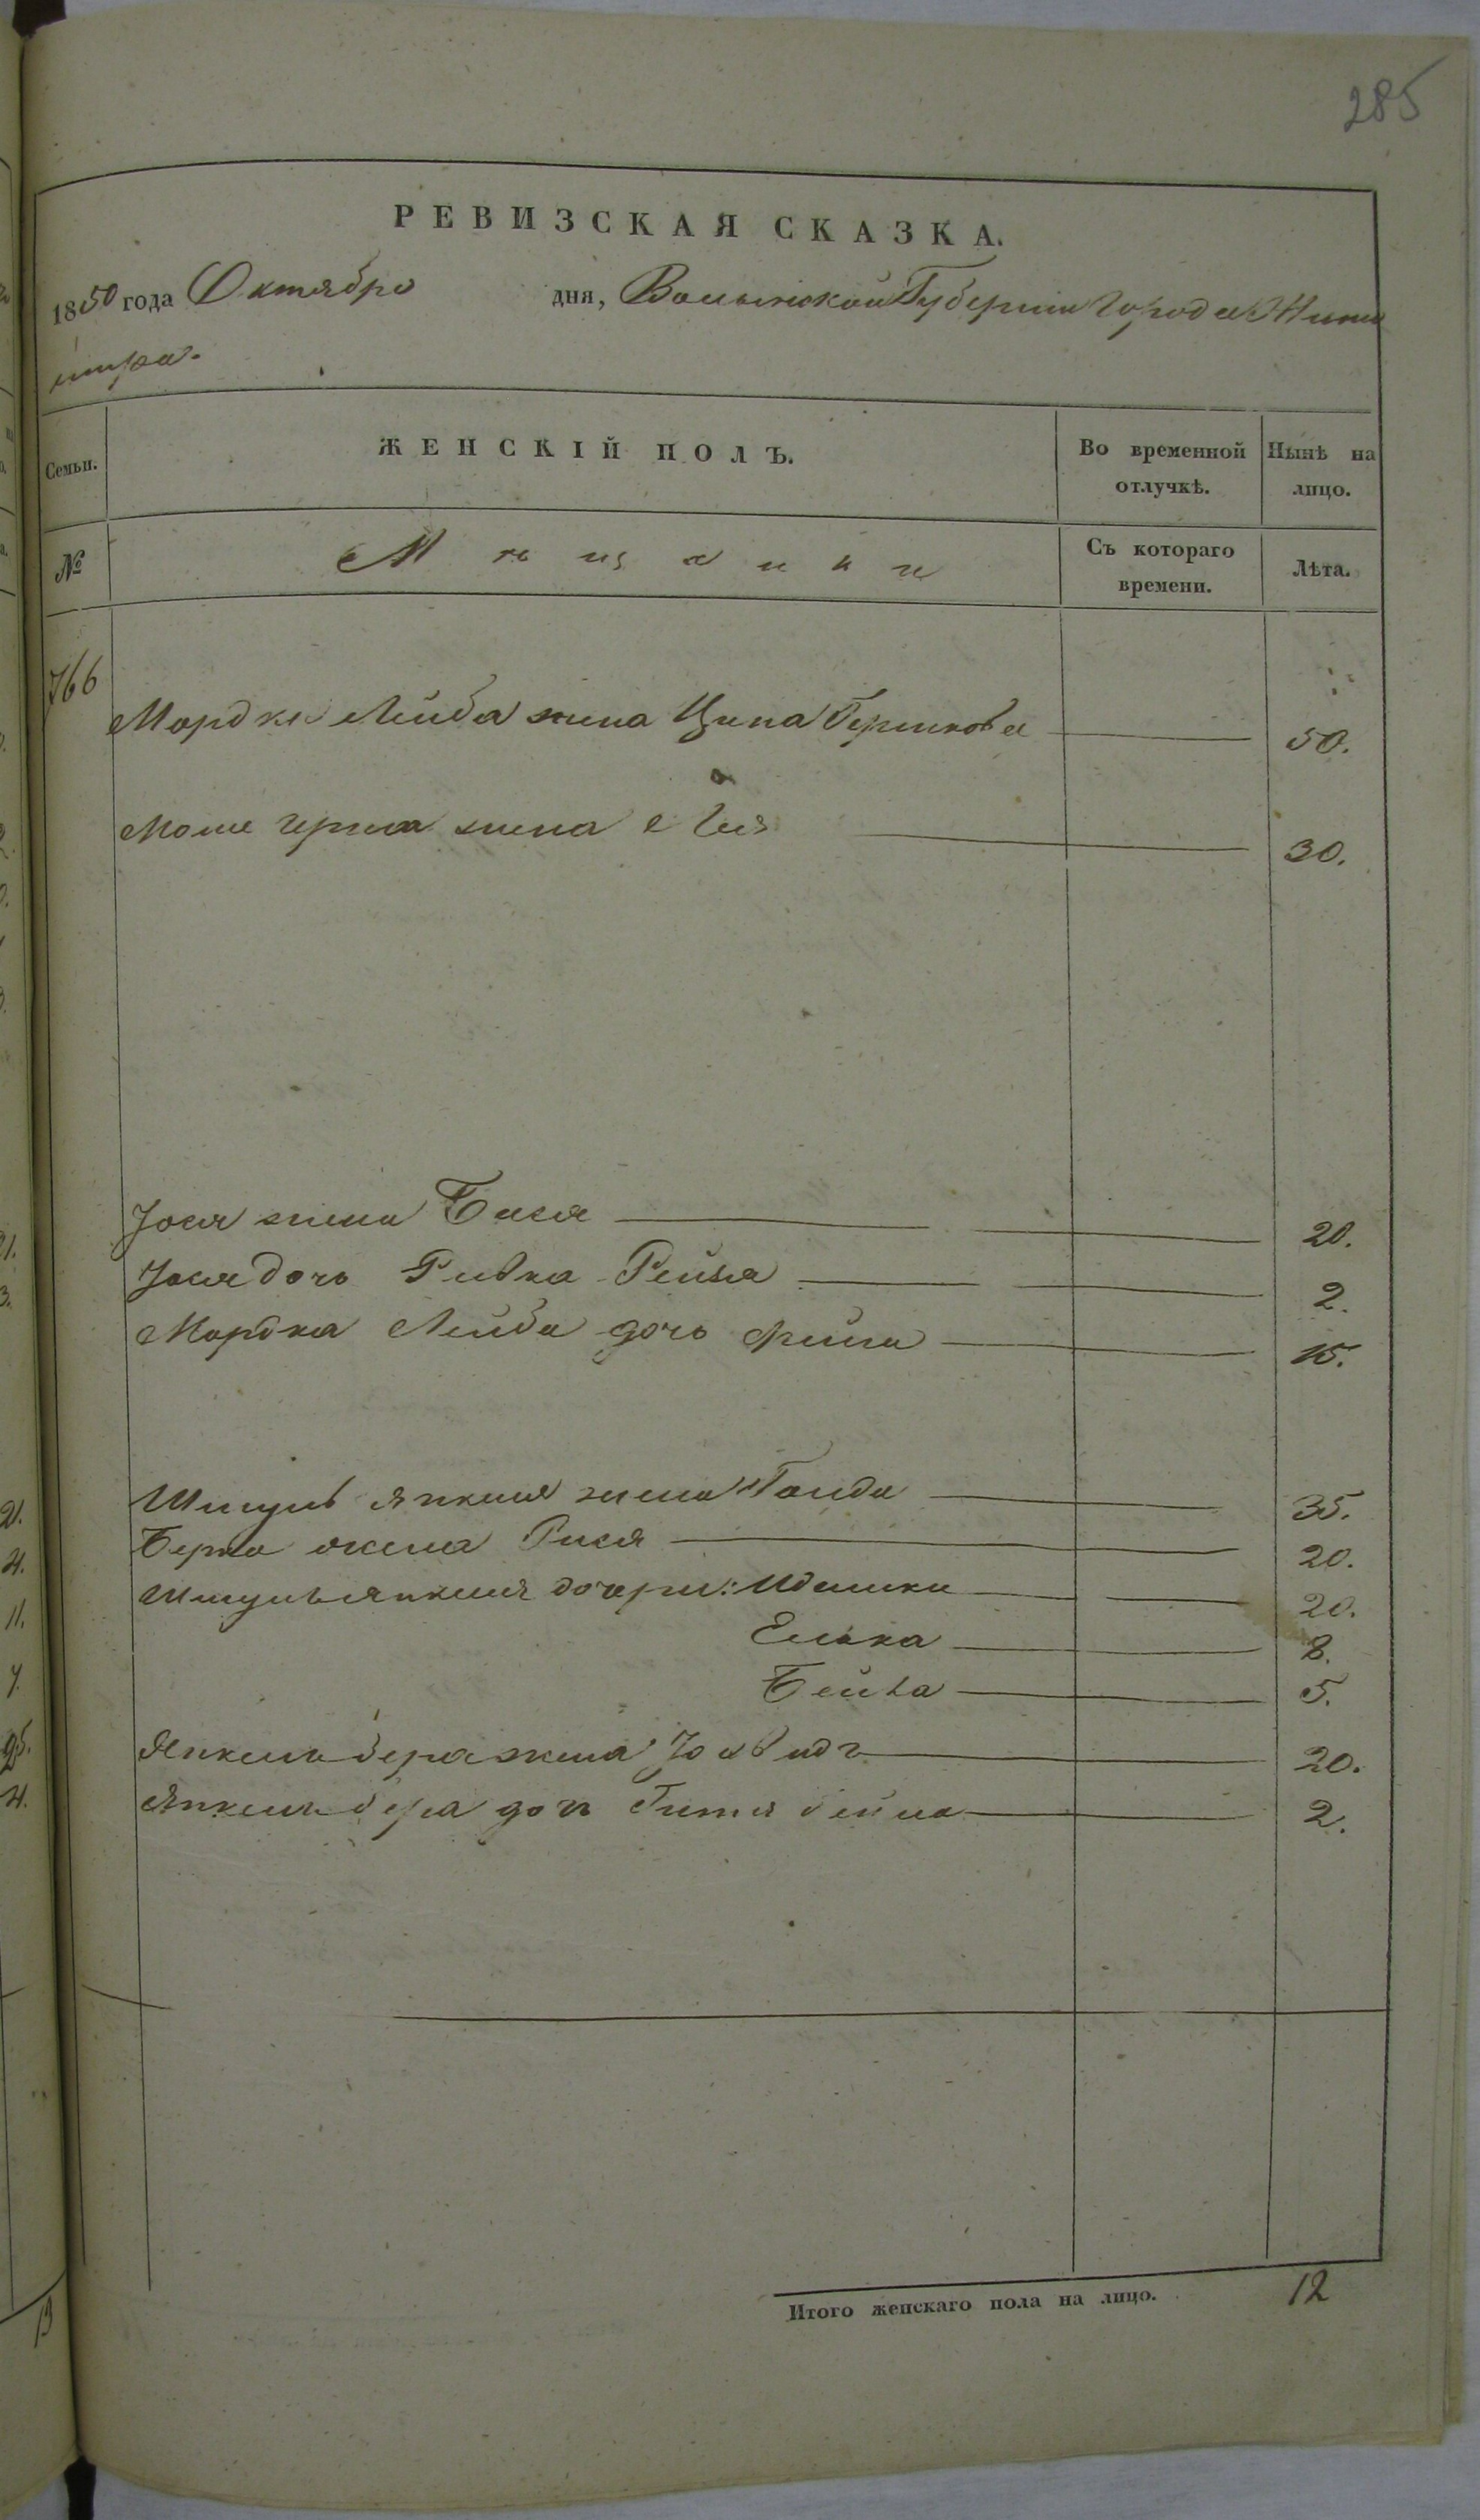 285
РЕВИЗСКАЯ СКАЗКА.
1850 года Октября дня, Волынской Губернии Города Жито
мира.
Семьи. ЖЕНСКІЙ ПОЛЪ. Во временной отлучкѣ. Нынѣ на лицо.
№ Мѣщанки Съ котораго времени. Лѣта.
766
Мордка Лейба жина Ципа Гершкова 50.
Мошe Герша жина 30.
Іося жина Бася 20.
Іося дочь Ривка Рейзя 2.
Мордка Лейба дочь Фейга 15.
Шмуль Янкеля жена 35.
Берка жена Рися 20.
Шмуль Янкеля дочери: 20.
Елька 8.
Бейла 5.
Янкель Бера жена 20.
Янкель Бера дочь Гитя Бейла 2.
Итого женскаго пола на лицо. 12
21.
3.
21.
4.
11.
7.
25.
4.
13